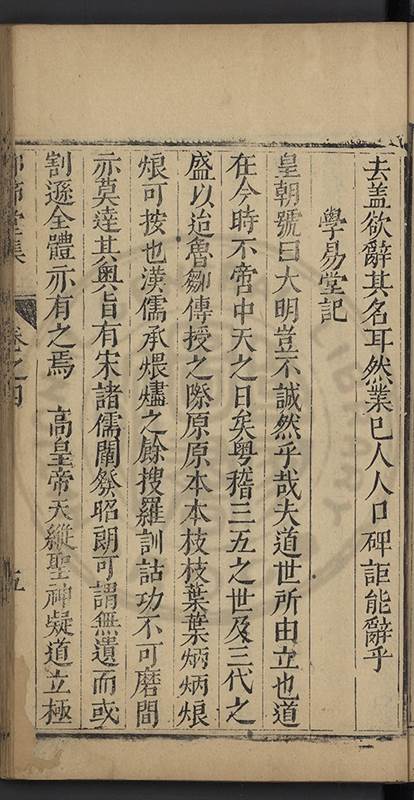 去盖欲辭其名耳然業已人人口碑詎能辭乎
學易堂記
皇朝號曰大明豈不誠然乎哉夫道世所由立也道
在今時不啻中天之日矣粤稽三五之世及三代之
盛以迨魯鄒傳授之際原原本本枝枝葉葉炳炳烺
烺可按也漢儒承煨燼之餘搜羅訓詁功不可磨間
亦莫達其奥㫖有宋諸儒闡發昭朗可謂無遺而或
割遜全體亦有之焉　高皇帝天縱聖神凝道立極
卷之四
五